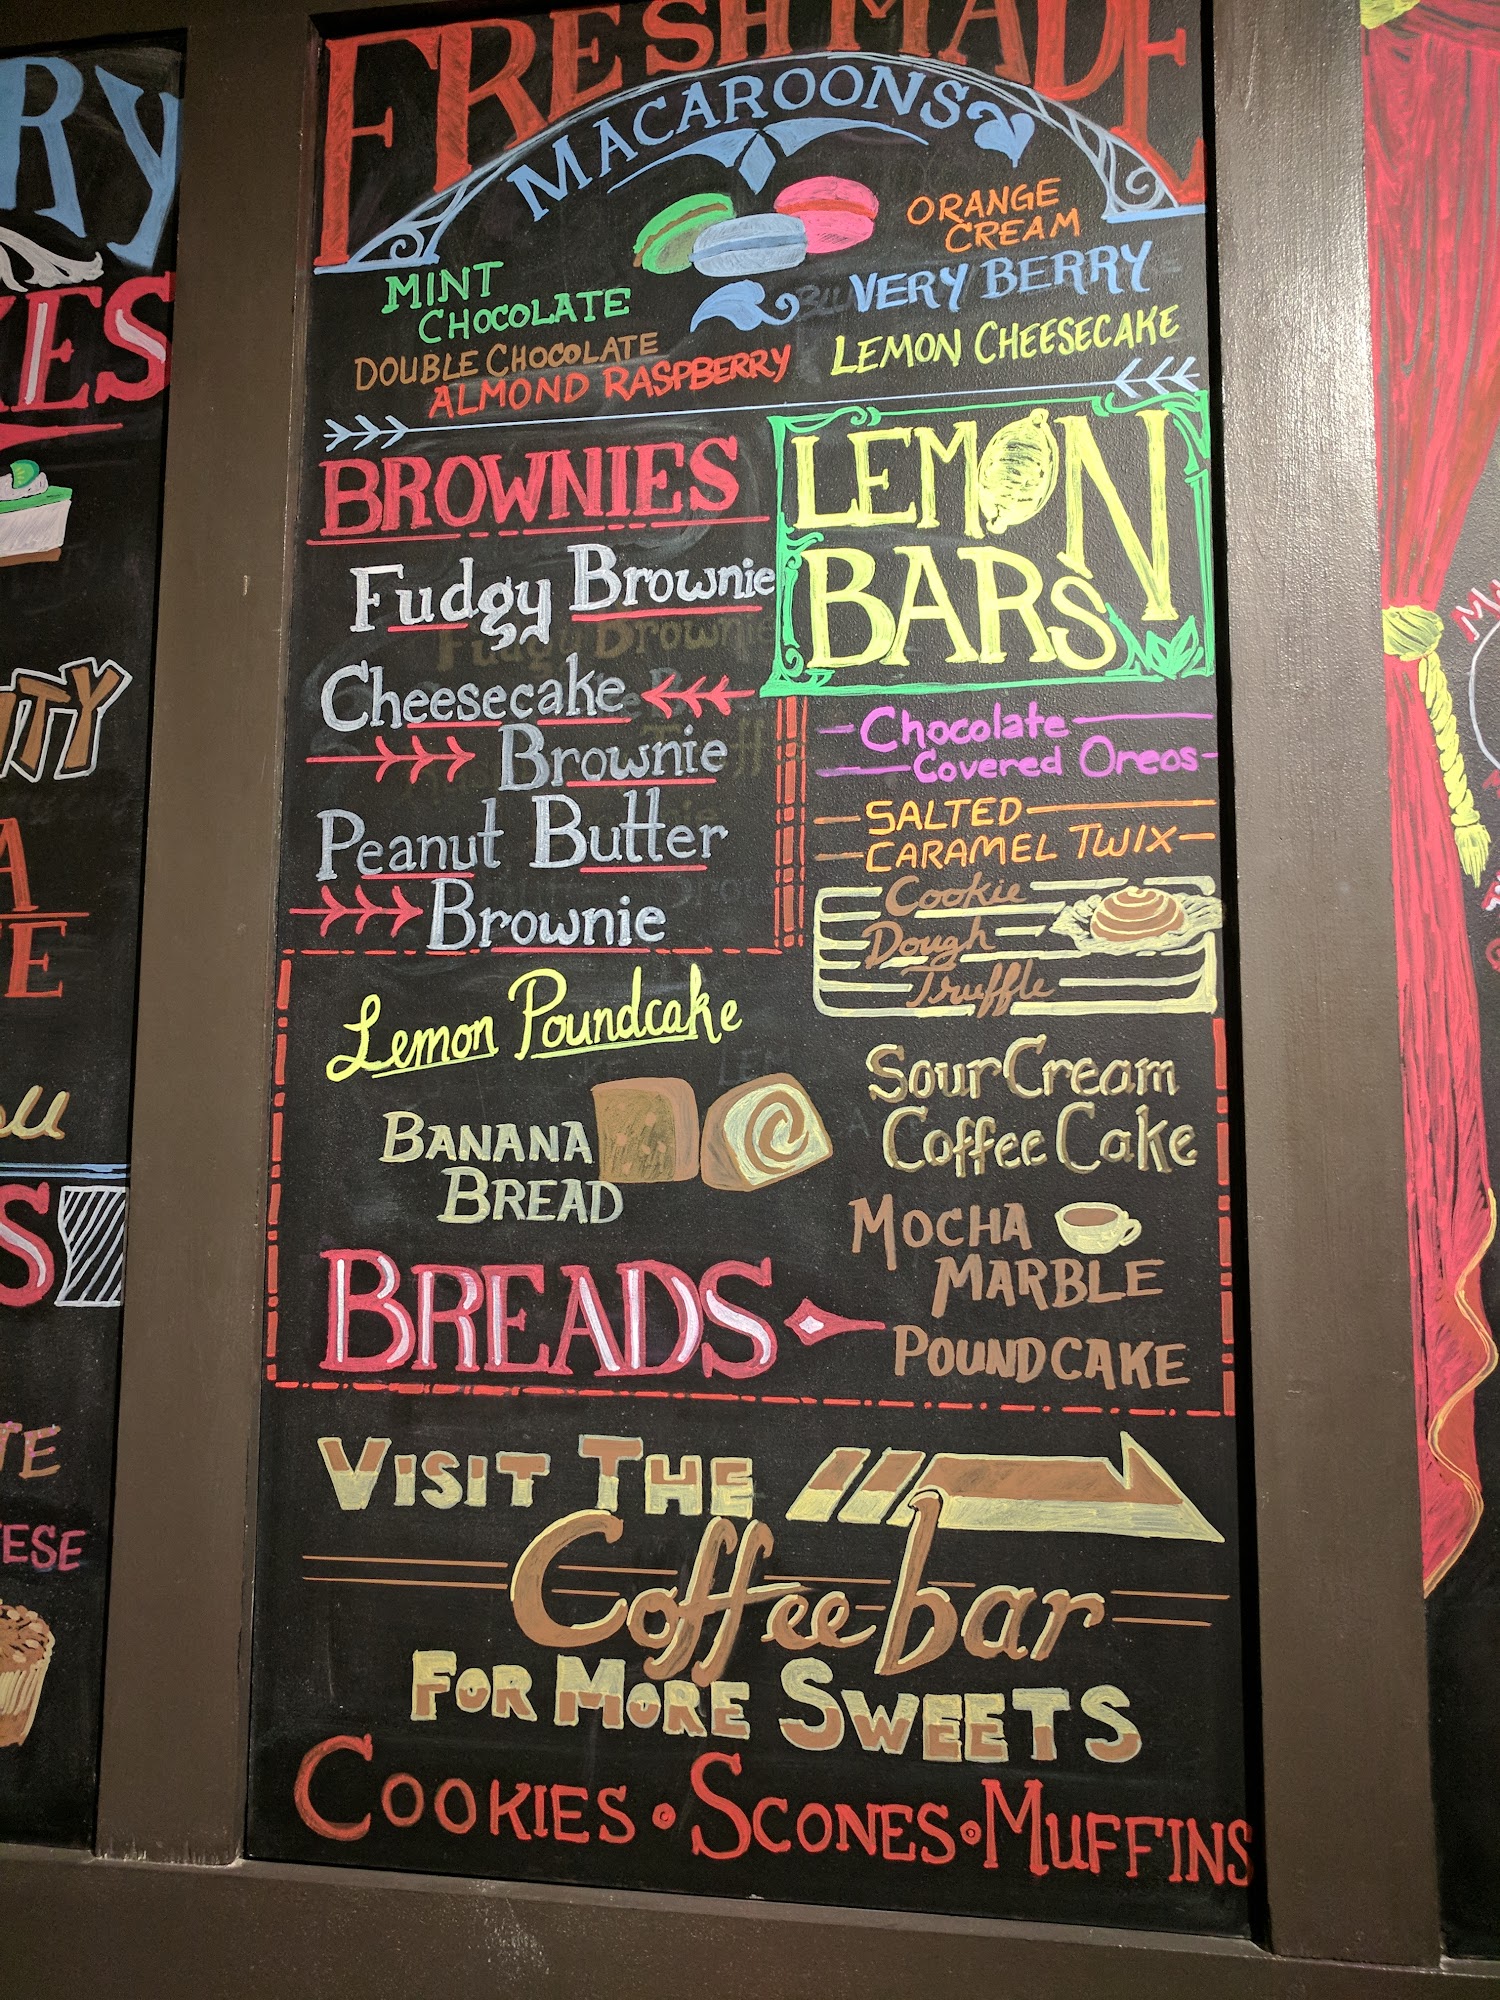 FRESH MADE
MACAROONS
ORANGE
CREAM
MINT
CHOCOLATE
VERY BERRY
DOUBLE CHOCOLATE
ALMOND RASPBERRY
LEMON CHEESECAKE
BROWNIES
Fudgy Brownie
Cheesecake
Brownie
Peanut Butter
Brownie
LEMON
BARS
Chocolate
Covered Oreos
SALTED
CARAMEL TWIX
Cookie
Dough
Truffle
Lemon Poundcake
BANANA
BREAD
Sour Cream
Coffee Cake
MOCHA
MARBLE
POUNDCAKE
BREADS
VISIT THE
Coffee bar
FOR MORE SWEETS
COOKIES • SCONES • MUFFINS
RY
KES
TY
A
E
S
TE
ESE